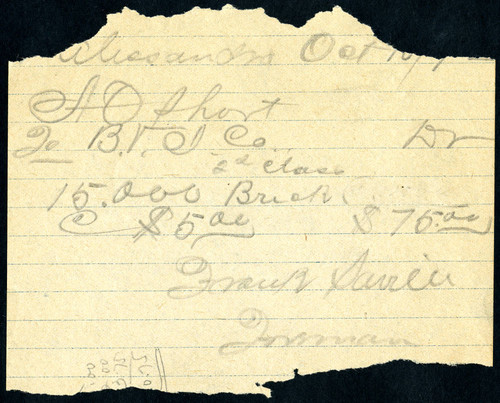 Alessandro Oct 10/
A O Short
To B.V. I Co. Dr
2d Class
15.000 Brick
@ $5.00 $75.00
Frank
Foreman